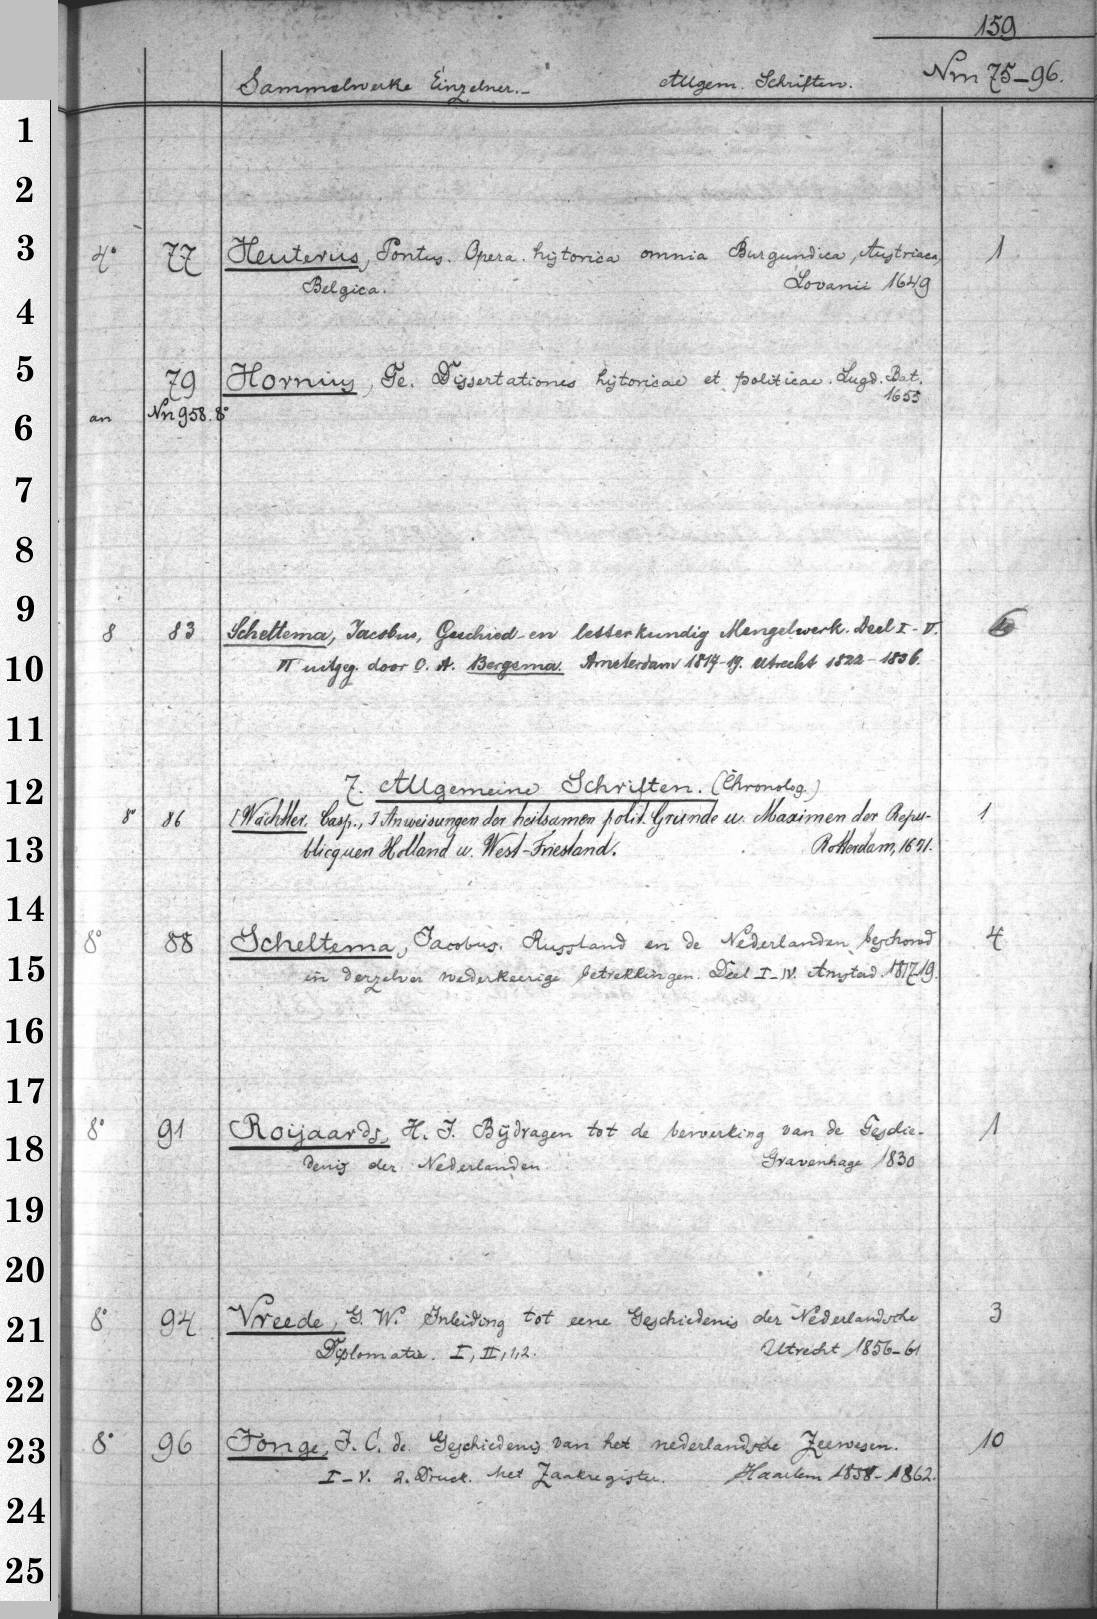 159
Sammelwerke Einzelner.- Allgem. Schriften. Nm 75-96.
1
2
3
4
5
6
7
8
9
10
11
12
13
14
15
16
17
18
19
20
21
22
23
24
25
4° 77 Heuterus, Pontus. Opera historica omnia Burgundica, Austriaca, 1
Belgica. Lovanii 1649
79 Hornius, Ge. Dissertationes historicae et politicae. Lugd. Bat.
1655
an Nn 958. 8°
8 83 Scheltema, Jacobus, Geschied- en letterkundig Mengelwerk. Deel I-V.
VI uitgeg. door O. A. Bergsma. Amsterdam 1817-19. Utrecht 1822-1836.
7. Allgemeine Schriften. (Chronolog.)
8° 86 [Wachtler. Casp.,] Anweisungen der heilsamen polit. Gründe u. Maximen der Repu- 1
blicquen Holland u. West-Friesland. Rotterdam, 1671.
8° 88 Scheltema, Jacobus. Russland en de Nederlanden beschowd 4
in derzelver wederkeerige betrekkingen. Deel I-IV. Amstad. 1817-19.
8° 91 Roijaards, H. J. Bijdragen tot de bewerking van de Geschie- 1
denis der Nederlanden. Gravenhage 1830
8° 94 Vreede, G. W. Inleiding tot eene Geschiedenis der Nederlandsche 3
Diplomatie. I, II, 1,2. Utrecht 1856-61
8° 96 Jonge, J. C. de Geschiedenis van het nederlandsche Zeewesen. 10
I-V. 2. Druck. Met Zaakregister. Haarlem 1858-1862.